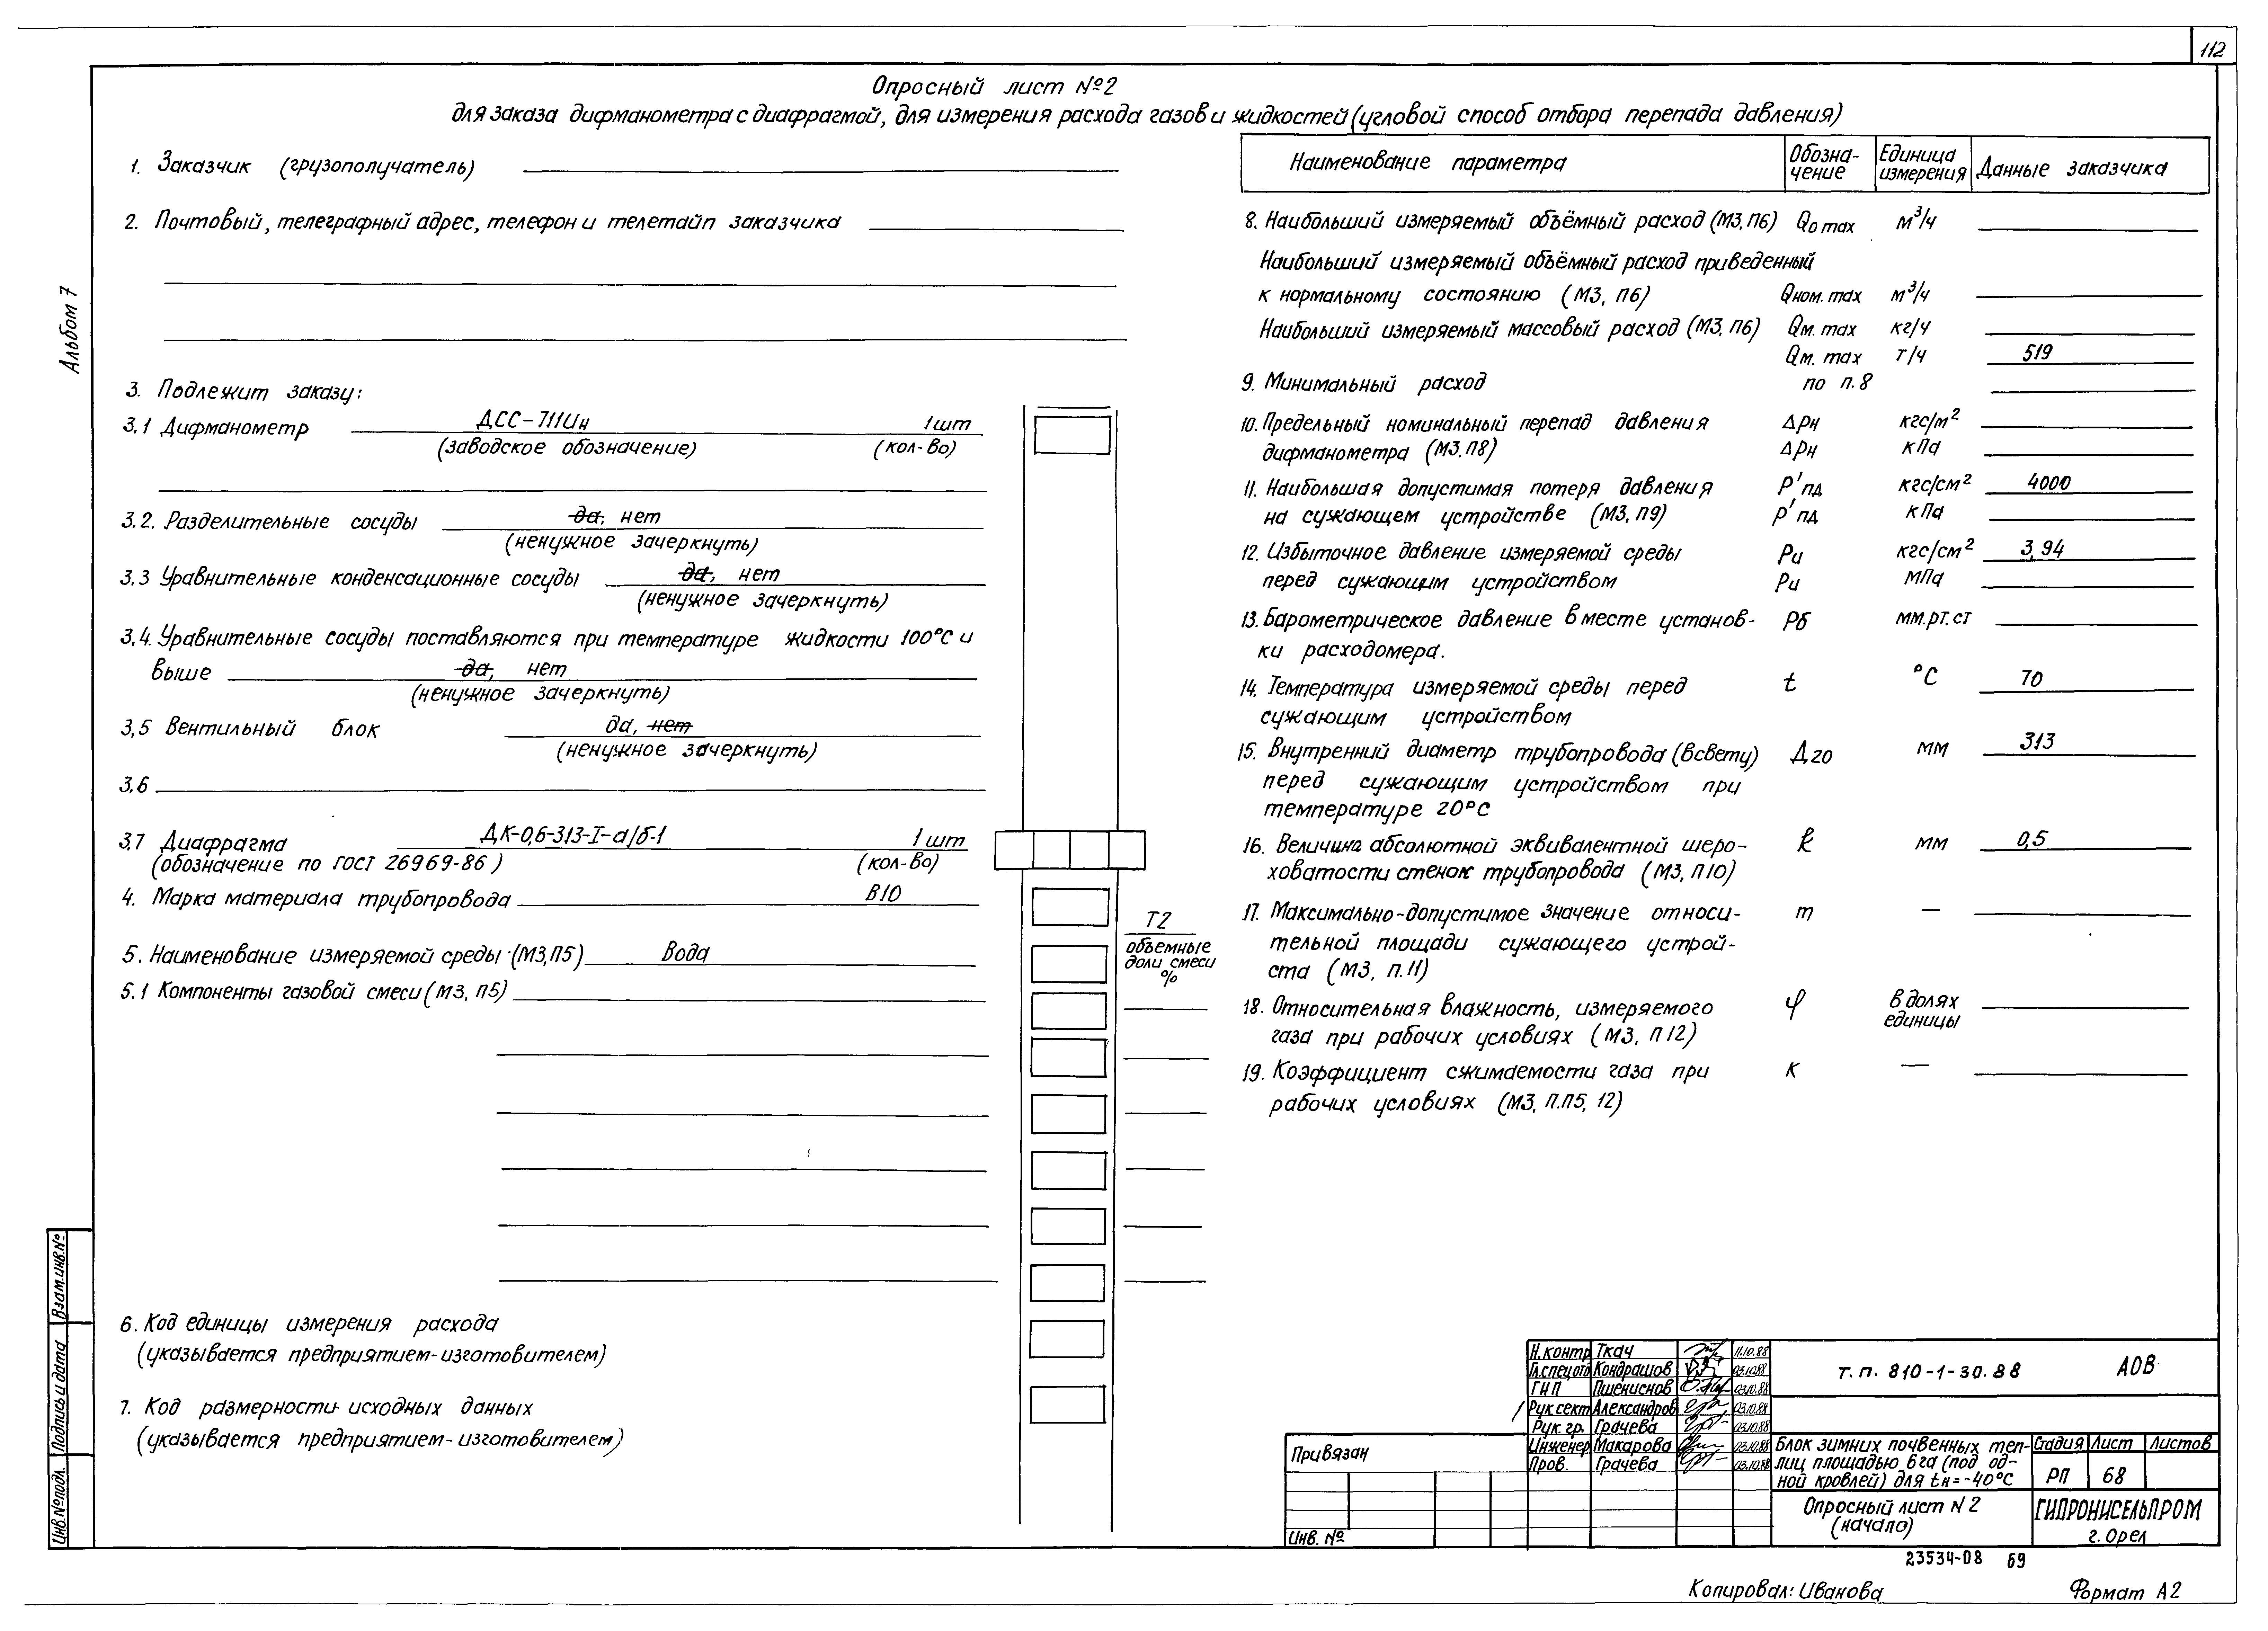 112
Опросный лист №2
для заказа дифманометра с диафрагмой, для измерения расхода газов и жидкостей (угловой способ отбора перепада давления)
Альбом 7
1. Заказчик (грузополучатель)
2. Почтовый, телеграфный адрес, телефон и телетайп заказчика
3. Подлежит заказу:
3.1 Дифманометр ДСС-711Ин 1 шт
(заводское обозначение) (кол-во)
3.2. Разделительные сосуды да, нет
(ненужное зачеркнуть)
3.3 Уравнительные конденсационные сосуды да, нет
(ненужное зачеркнуть)
3.4. Уравнительные сосуды поставляются при температуре жидкости 100°С и
выше да, нет
(ненужное зачеркнуть)
3,5 Вентильный блок да, нет
(ненужное зачеркнуть)
3.6
3.7 Диафрагма ДК-0,6-313-I-а/б-1 1 шт
(обозначение по ГОСТ 26969-86) (кол-во)
4. Марка материала трубопровода В10
5. Наименование измеряемой среды (М3, П5) Вода
5.1 Компоненты газовой смеси (М3, П5)
Т2
объемные
доли смеси
%
6. Код единицы измерения расхода
(указывается предприятием-изготовителем)
7. Код размерности исходных данных
(указывается предприятием-изготовителем)
Наименование параметра
Обозна-
чение
Единица
измерения
Данные заказчика
8. Наибольший измеряемый объёмный расход (М3, П6) Qо max м³/ч
Наибольший измеряемый объёмный расход приведенный
к нормальному состоянию (М3, П6) Qном. max м³/ч
Наибольший измеряемый массовый расход (М3, П6) Qм. max кг/ч
Qм. max т/ч 519
9. Минимальный расход по п. 8
10. Предельный номинальный перепад давления ΔРн кгс/м²
дифманометра (М3. П8) ΔРн кПа
11. Наибольшая допустимая потеря давления Р'пд кгс/см² 4000
на сужающем устройстве (М3, П9) Р'пд кПа
12. Избыточное давление измеряемой среды Ри кгс/см² 3,94
перед сужающим устройством Ри МПа
13. Барометрическое давление в месте установ- Рб мм.рт.ст
ки расходомера.
14. Температура измеряемой среды перед t °С 70
сужающим устройством
15. Внутренний диаметр трубопровода (всвету) Д20 мм 313
перед сужающим устройством при
температуре 20°С
16. Величина абсолютной эквивалентной шеро- k мм 0,5
ховатости стенок трубопровода (М3, П10)
17. Максимально-допустимое значение относи- m —
тельной площади сужающего устрой-
ста (М3, П.11)
18. Относительная влажность, измеряемого φ в долях
единицы
газа при рабочих условиях (М3, П 12)
19. Коэффициент сжимаемости газа при к —
рабочих условиях (М3, П.П5, 12)
Взам.инв.№
Подпись и дата
Инв.№подл.
Привязан
Инв. №
Н.контр Ткач 11.10.88
Гл.спецото Кондрашов 03.10.88
ГИП Пшениснов 03.10.88
Рук.сект Александров 03.10.88
Рук. гр. Грачева 03.10.88
Инженер Макарова 03.10.88
Пров. Грачева 03.10.88
т.п. 810-1-30.88 АОВ
Блок зимних почвенных теп-
лиц площадью 6га (под од-
ной кровлей) для tн=-40°С
Стадия Лист Листов
РП 68
Опросный лист N 2
(начало)
ГИПРОНИСЕЛЬПРОМ
г. Орел
23534-08 69
Копировал: Иванова Формат А2